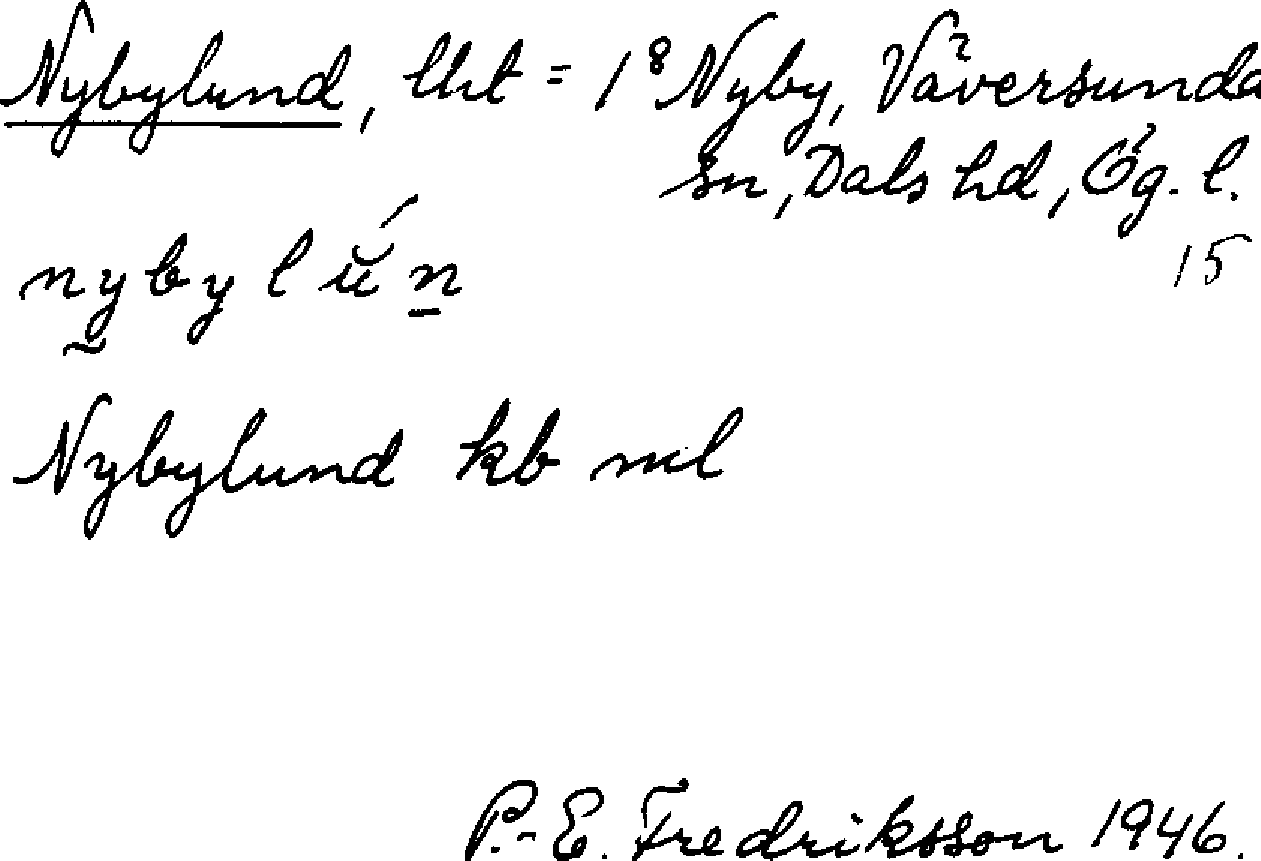 Nybylund, lht = 1⁸ Nyby, Väversunda
sn, Dals hd, Ög. l.
15
nybylŭ́n
Nybylund kb ml
P.-E. Fredriksson 1946.